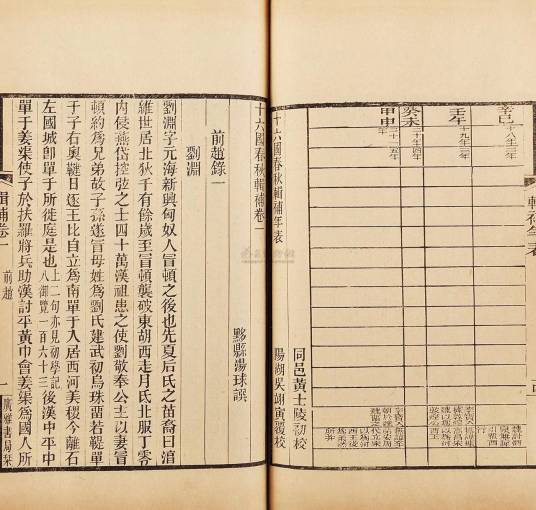 辛巳
十八年三年
壬午
十九年三年
癸未
二十年四年
甲申
二十一年五年
十六國春秋輯補年表
同邑黃士陵初校
陽湖吳翊寅覆校
十六國春秋輯補卷一
黟縣湯球撰
前趙錄一
劉淵
劉淵字元海新興匈奴人冒頓之後也先夏后氏之苗裔曰淯
維世居北狄千有餘歲至冒頓襲破東胡西走月氏北服丁零
內侵燕岱控弦之士四十萬漢祖患之使劉敬奉公主以妻冒
頓約為兄弟故子孫遂冒母姓為劉氏建武初烏珠留若鞮單
于子右奧鞬日逐王比自立為南單于入居西河美稷今離石
左國城卽單于所徙庭是也上二句亦見初學記八御覽一百六十三後漢中平中
單于姜渠使子於扶羅將兵助漢討平黃巾會姜渠為國人所
輯補卷一
前趙
一
廣雅書局栞